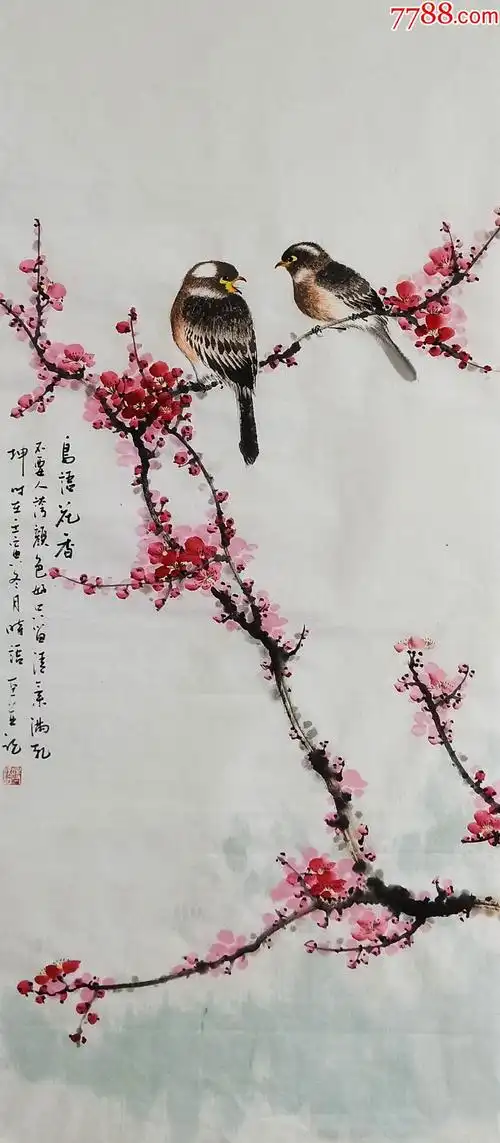 7788.com
鳥語花香
不要人誇顏色好只留清氣滿乾
坤時在壬寅冬月